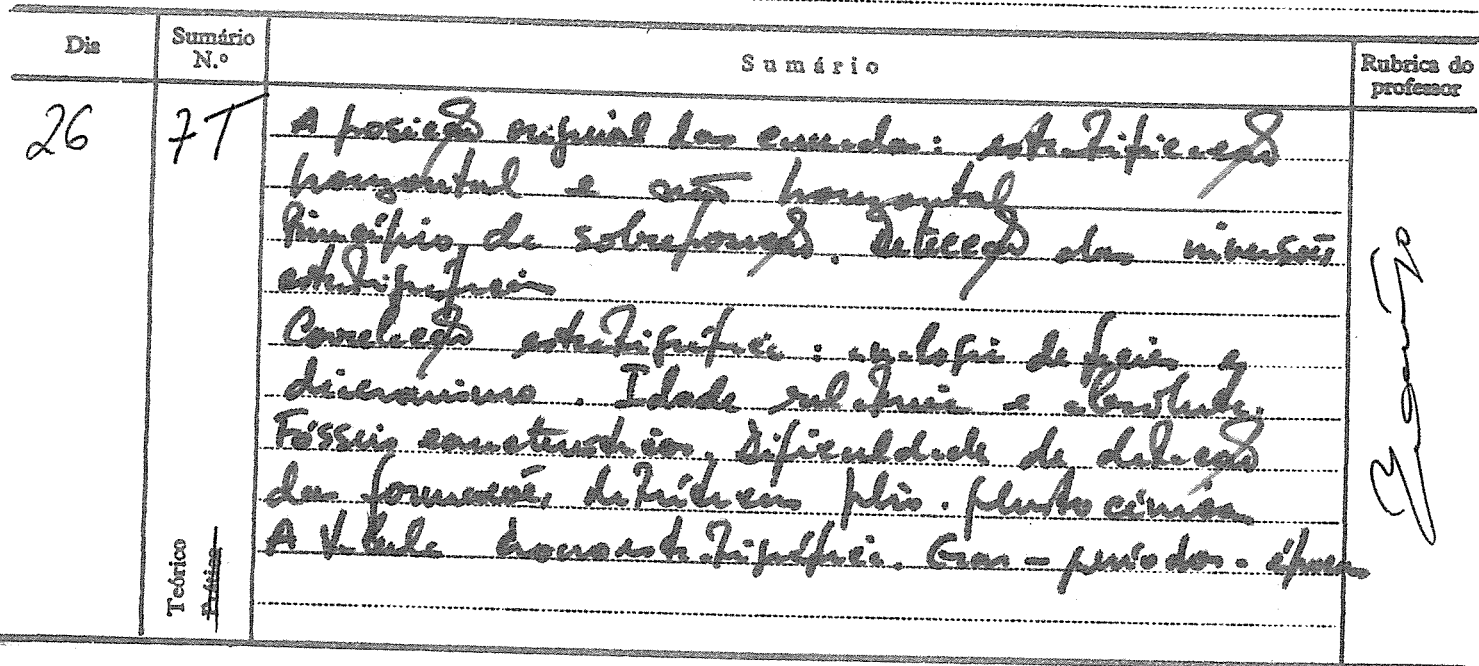 Dia
Sumário N.º
Sumário
Rubrica do professor
26
7T
A posição original das camadas: estratificação
horizontal e não horizontal
Princípio de sobreposição. Detecção das inversões
estratigráficas
Correlação estratigráfica: analogia de facies e
diacronismo. Idade relativa e absoluta.
Fósseis característicos. Dificuldade de datação
das formações detríticas plio-plistocénicas
A tabela cronoestratigráfica. Eras - períodos - épocas
Teórico
Prático